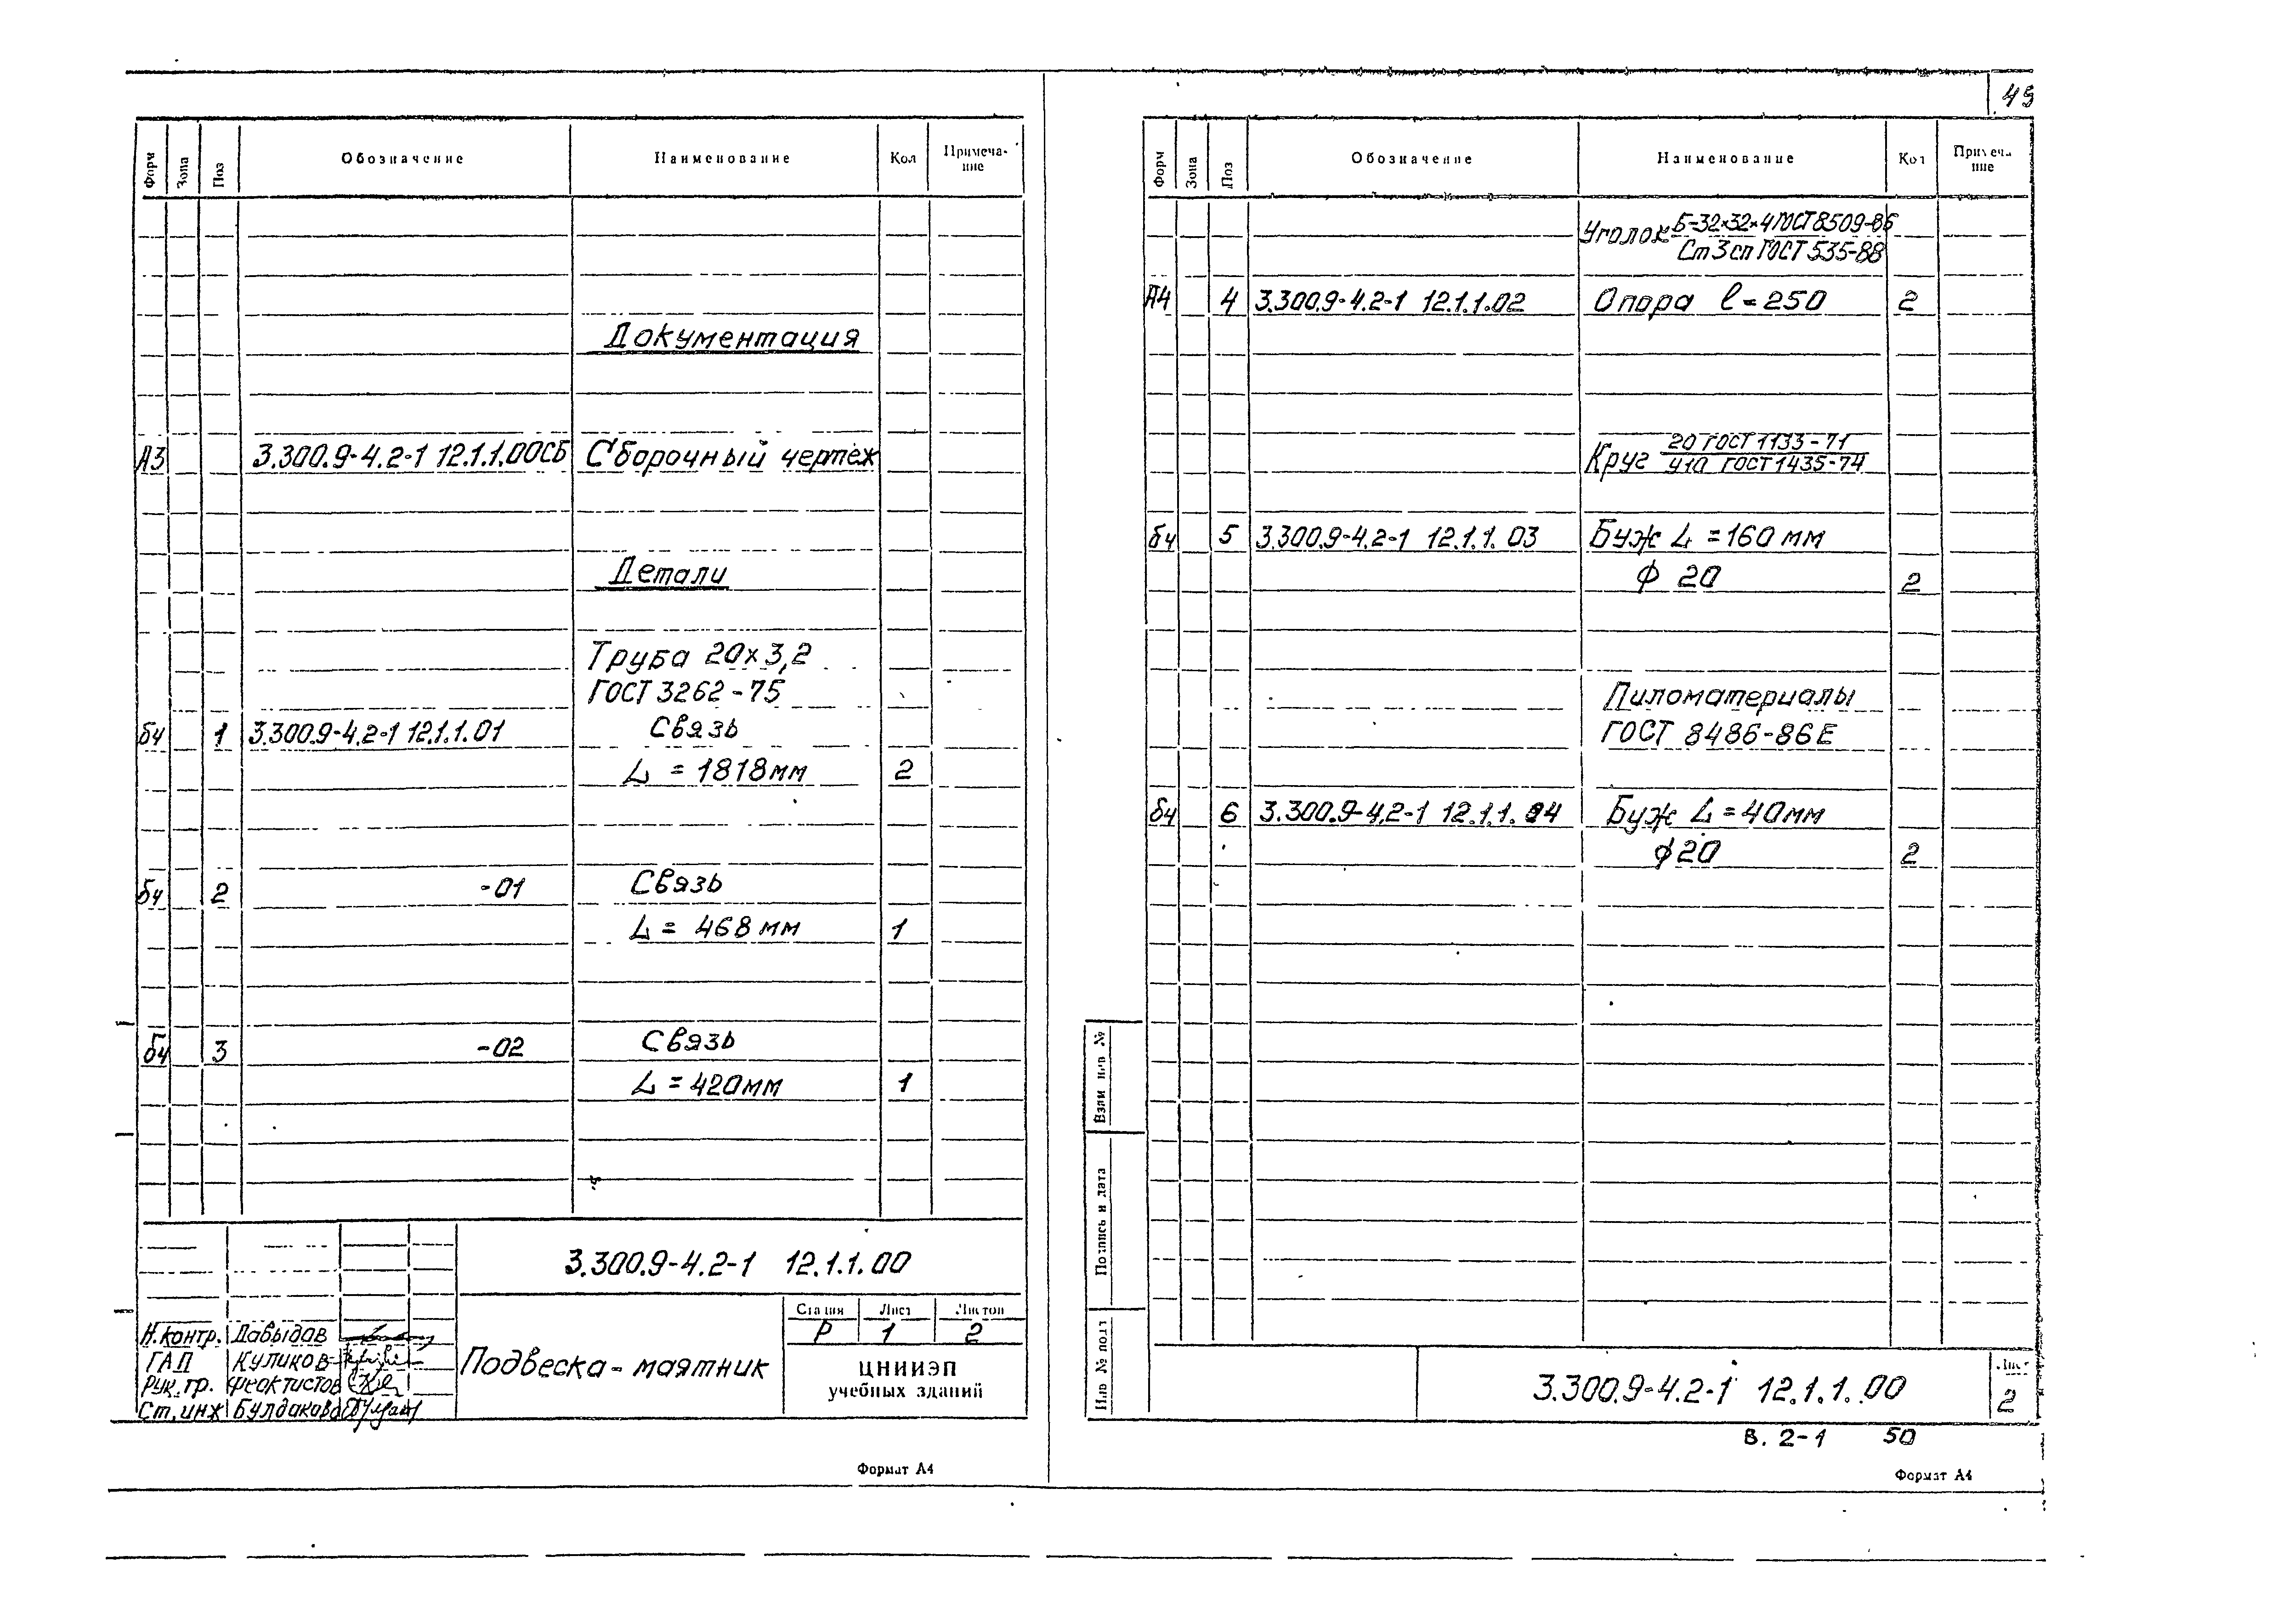 49
Форм Зона Поз Обозначение Наименование Кол Примеча-
ние
Документация
А3 3.300.9-4.2-1 12.1.1.00СБ Сборочный чертёж
Детали
Труба 20х3,2
ГОСТ 3262-75
бч 1 3.300.9-4.2-1 12.1.1.01 Связь
L = 1818мм 2
бч 2 -01 Связь
L = 468 мм 1
бч 3 -02 Связь
L = 420мм 1
3.300.9-4.2-1 12.1.1.00
Стадия Лист Листов
Р 1 2
Н.контр. Давыдов
ГАП Куликов
Рук.гр. Феоктистов
Ст.инж Булдакова
Подвеска-маятник
ЦНИИЭП
учебных зданий
Формат А4
Форм Зона Поз Обозначение Наименование Кол Примеча-
ние
Уголок Б-32×32×4 ГОСТ 8509-86
Ст3сп ГОСТ 535-88
А4 4 3.300.9-4.2-1 12.1.1.02 Опора l=250 2
Круг 20 ГОСТ 1133-71
У10 ГОСТ 1435-74
бч 5 3.300.9-4.2-1 12.1.1.03 Буж L=160 мм
ф 20 2
Пиломатериалы
ГОСТ 8486-86Е
бч 6 3.300.9-4.2-1 12.1.1.04 Буж L=40мм
ф20 2
Взам инв №
Подпись и дата
Инв № подл
3.300.9-4.2-1 12.1.1.00
Лист
2
В. 2-1 50
Формат А4